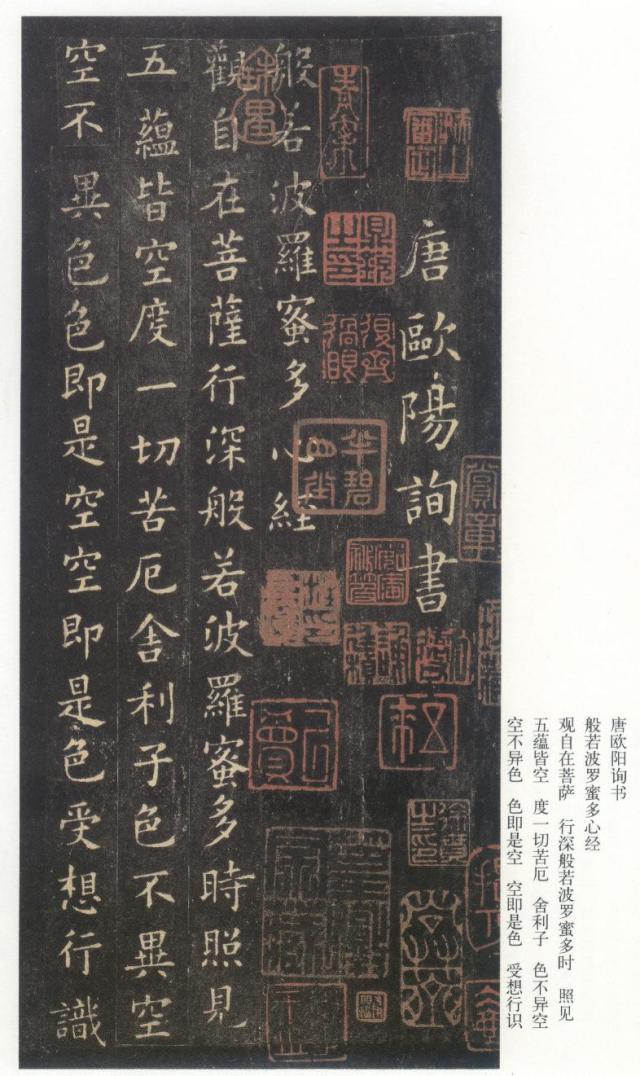 唐歐陽詢書
般若波羅蜜多心経
觀自在菩薩行深般若波羅蜜多時照見
五蘊皆空度一切苦厄舍利子色不異空
空不異色色即是空空即是色受想行識
唐欧阳询书
般若波罗蜜多心经
观自在菩萨 行深般若波罗蜜多时 照见
五蕴皆空 度一切苦厄 舍利子 色不异空
空不异色 色即是空 空即是色 受想行识